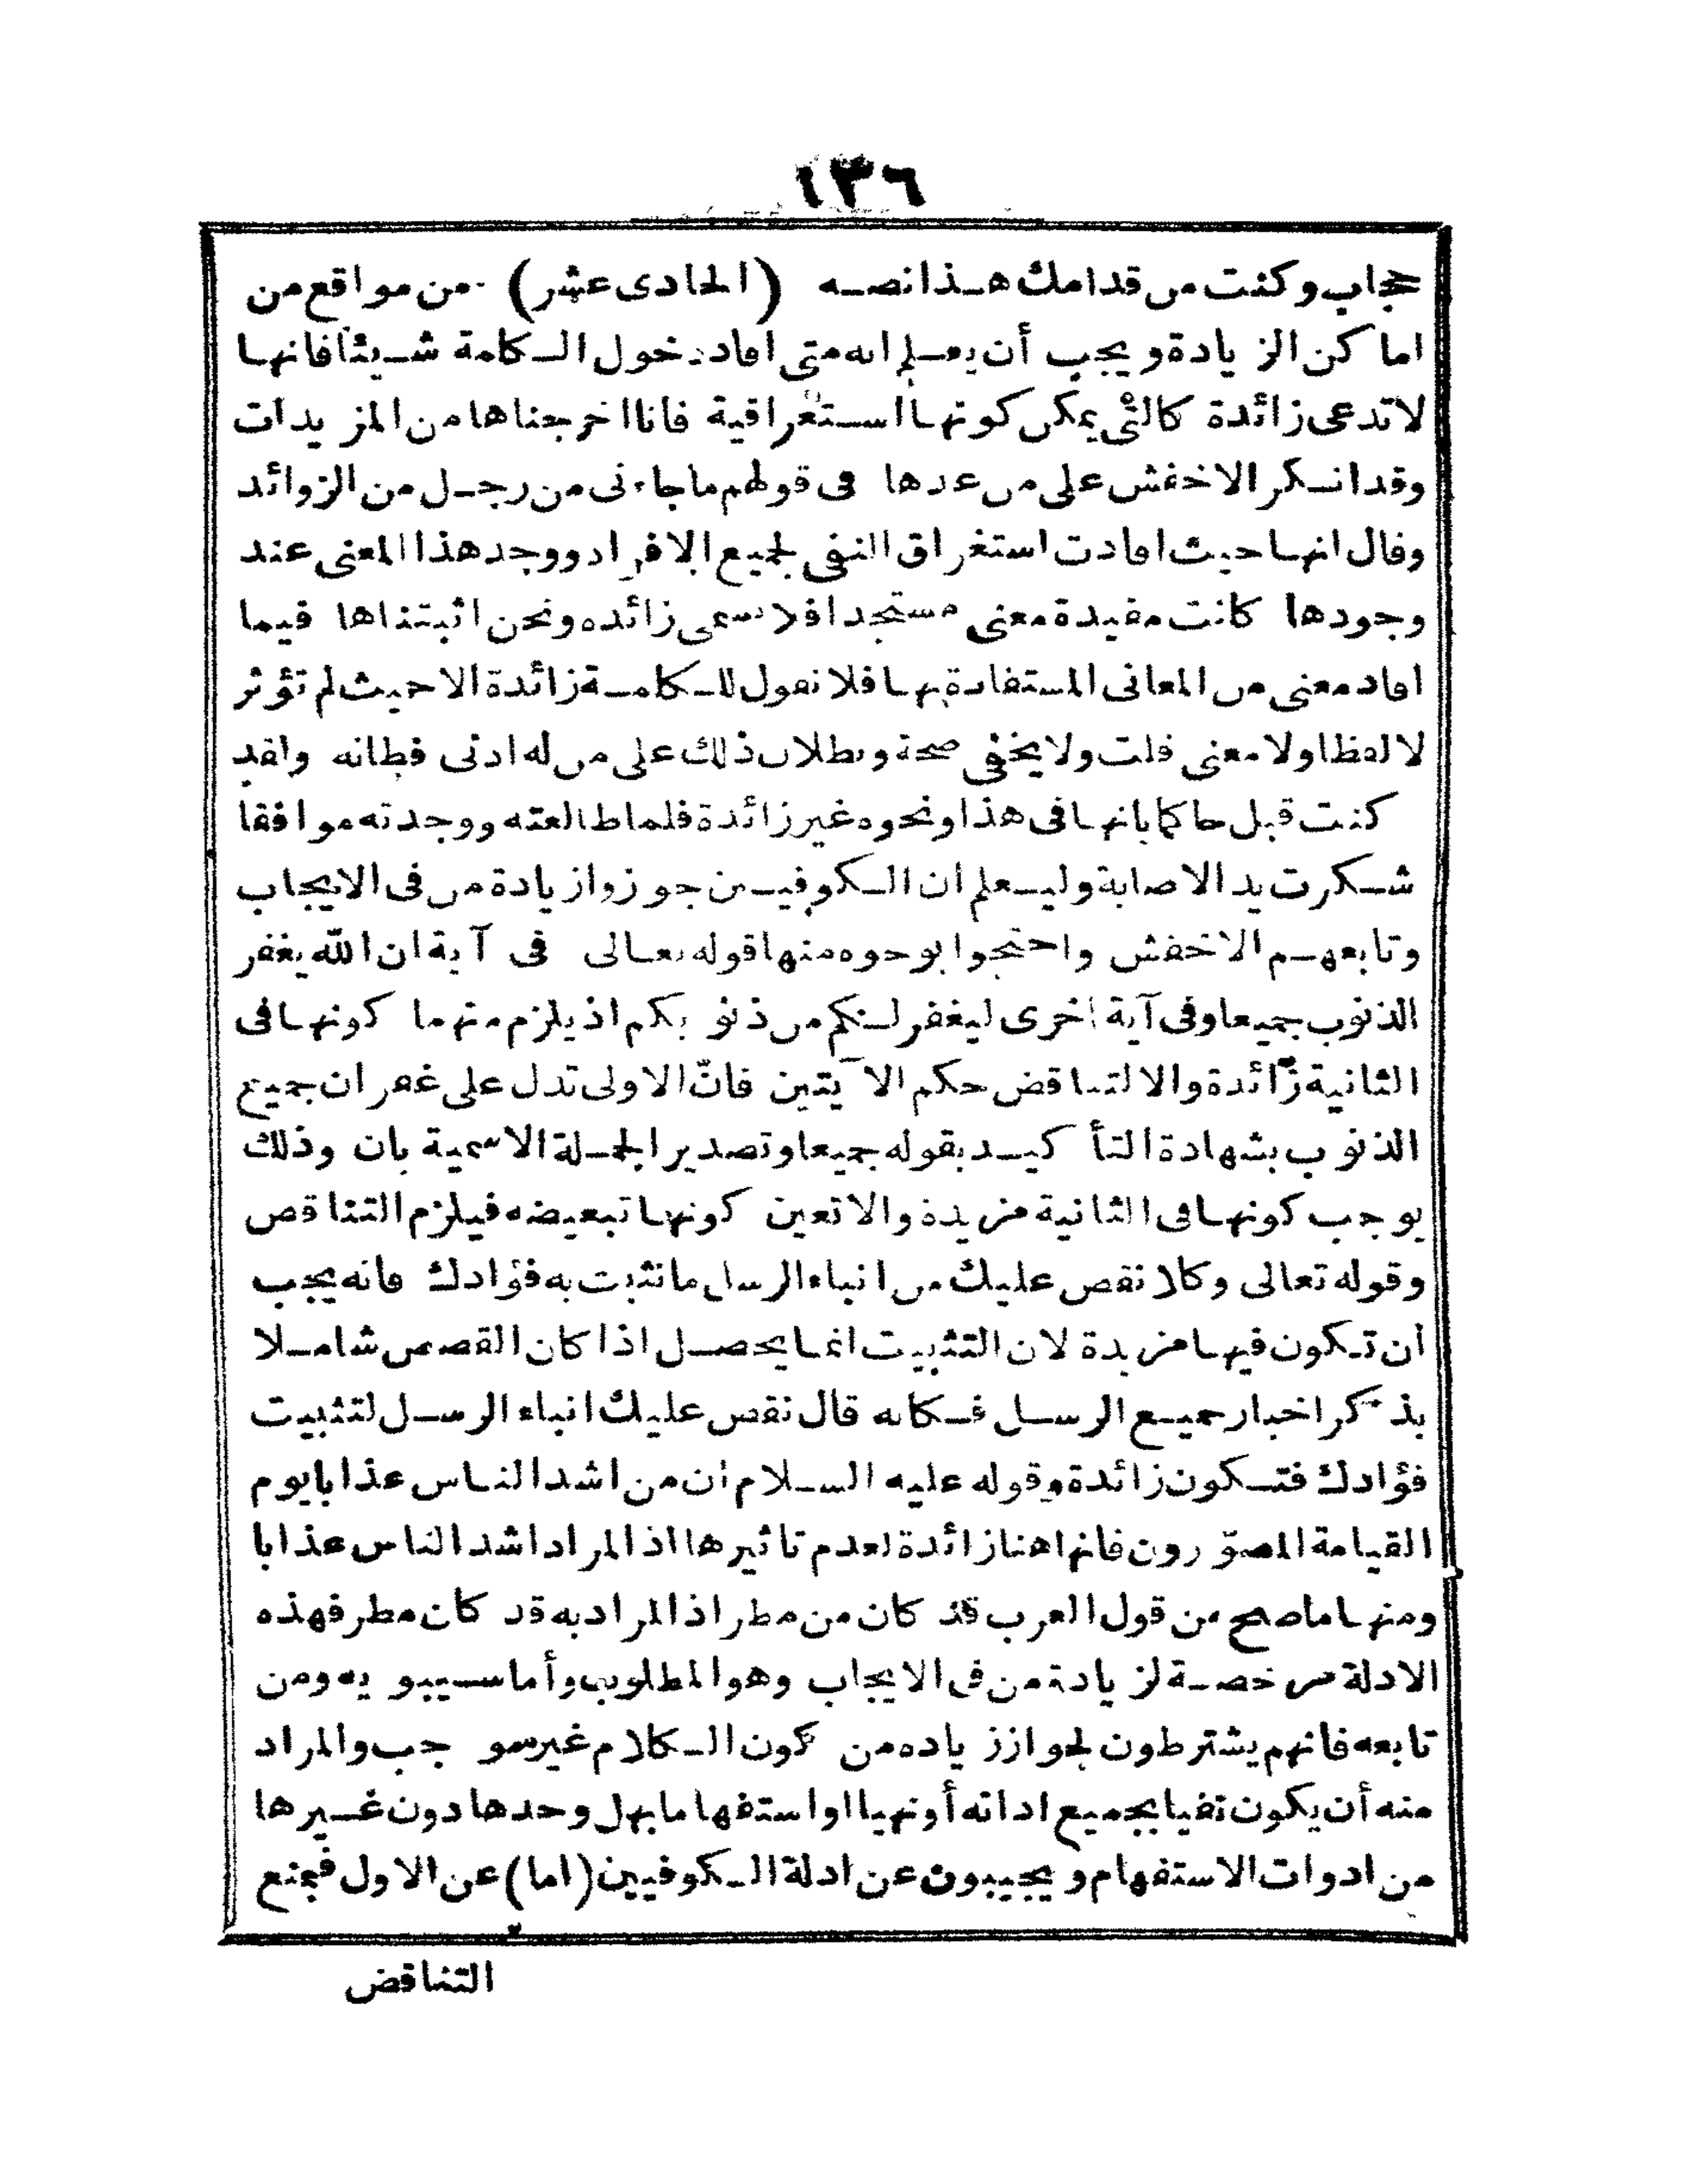 ١٣٦
حجاب وكنت من قدامك هذا نصه (الحادى عشر) من مواقع من
اماكن الزيادة ويجب أن يعلم انه متى افاد دخول الكلمة شيئا فانها
لا تدعى زائدة كالتى يمكن كونها استغراقية فانا اخرجناها من المزيدات
وقد انكر الاخفش على من عدها فى قولهم ماجاءنى من رجل من الزوائد
وقال انها حيث افادت استغراق النفى لجميع الافراد ووجد هذا المعنى عند
وجودها كانت مفيدة معنى مستجدا فلا تسمى زائده ونحن اثبتناها فيما
افاد معنى من المعانى المستفادة بها فلا نقول للكلمة زائدة الا حيث لم تؤثر
لا لفظا ولا معنى قلت ولا يخفى صحة وبطلان ذلك على من له ادنى فطانه ولقد
كنت قبل حاكما بانها فى هذا ونحوه غير زائدة فلما طالعته ووجدته موافقا
شكرت يد الاصابة وليعلم ان الكوفيين جوزوا زيادة من فى الايجاب
وتابعهم الاخفش واحتجوا بوجوه منها قوله تعالى فى آية ان الله يغفر
الذنوب جميعا وفى آية اخرى ليغفر لكم من ذنوبكم اذ يلزم منهما كونها فى
الثانية زائدة والا لتناقض حكم الآيتين فانّ الاولى تدل على غفران جميع
الذنوب بشهادة التأكيد بقوله جميعا وتصدير الجملة الاسمية بان وذلك
يوجب كونها فى الثانية مزيدة والا تعين كونها تبعيضه فيلزم التناقض
وقوله تعالى وكلا نقص عليك من انباء الرسل ما نثبت به فؤادك فانه يجب
أن تكون فيها مزيدة لان التثبيت انما يحصل اذا كان القصص شاملا
بذكر اخبار جميع الرسل فكانه قال نقص عليك انباء الرسل لتثبيت
فؤادك فتكون زائدة وقوله عليه السلام ان من اشد الناس عذابا يوم
القيامة المصوّرون فانها هنا زائدة لعدم تاثيرها اذ المراد اشد الناس عذابا
ومنها ما صح من قول العرب قد كان من مطر اذ المراد به قد كان مطر فهذه
الادلة مرخصة لزيادة من فى الايجاب وهو المطلوب وأما سيبويه ومن
تابعه فانهم يشترطون لجواز زياده من كون الكلام غير موجب والمراد
منه أن يكون نفيا بجميع اداته أو نهيا او استفهاما بهل وحدها دون غيرها
من ادوات الاستفهام ويجيبون عن ادلة الكوفيين (اما) عن الاول فبمنع
التناقض